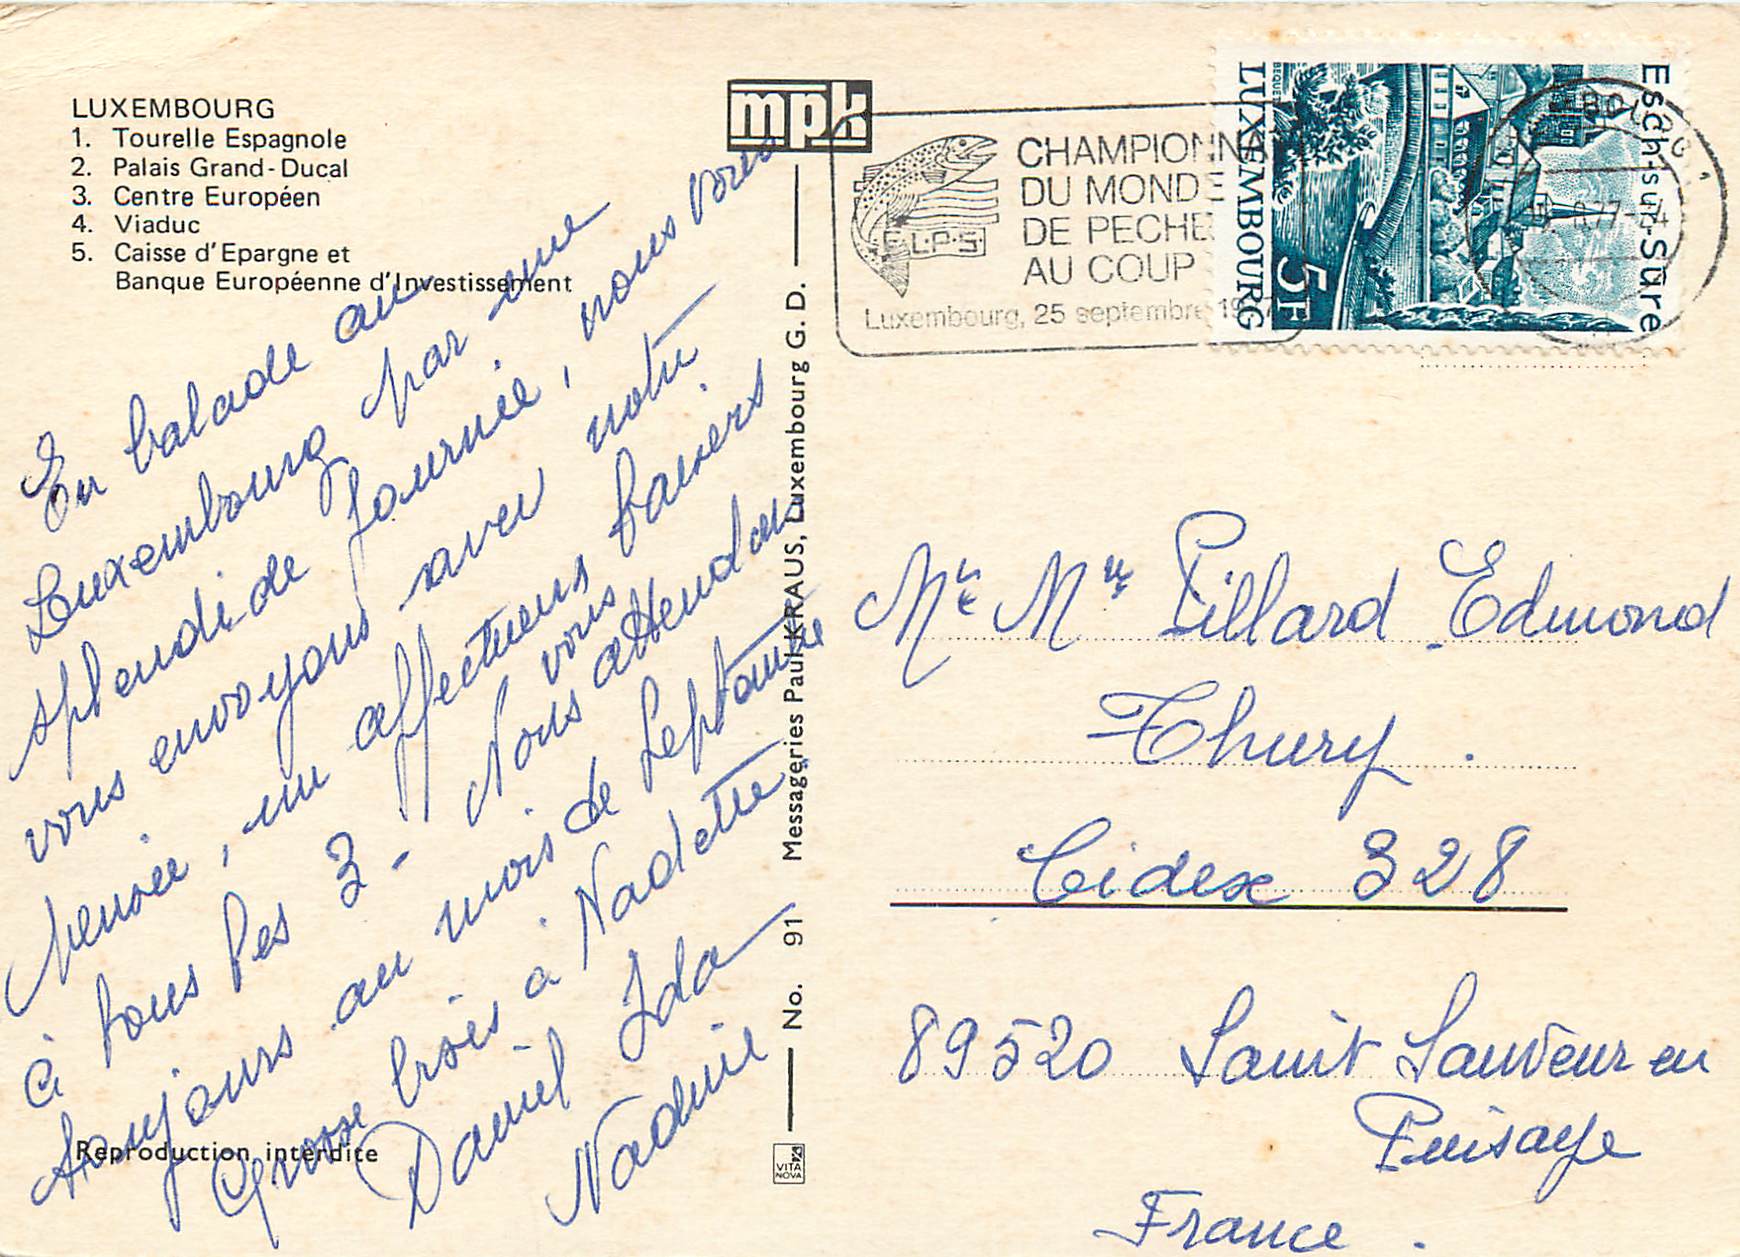 LUXEMBOURG
1. Tourelle Espagnole
2. Palais Grand-Ducal
3. Centre Européen
4. Viaduc
5. Caisse d'Epargne et
Banque Européenne d'Investissement
En balade au
Luxembourg par une
splendide journée, nous vous
vous envoyons avec notre
pensée, un affectueux baisers
à tous les 3 - Nous vous attendons
toujours au mois de Septembre
Grosse bises à Nadette.
Daniel Ida
Nadine
Reproduction interdite
mpk
No. 91 Messageries Paul KRAUS, Luxembourg G. D.
VITA
NOVA
CHAMPIONNA
DU MONDE
DE PECHE
AU COUP
F.L.P.S.
Luxembourg, 25 septembre 1977
Esch-sur-Sûre
LUXEMBOURG
5F
Mr et Mme Pillard Edmond
Thury.
Cidex 328
89520 Saint Sauveur en
Puisaye
France.